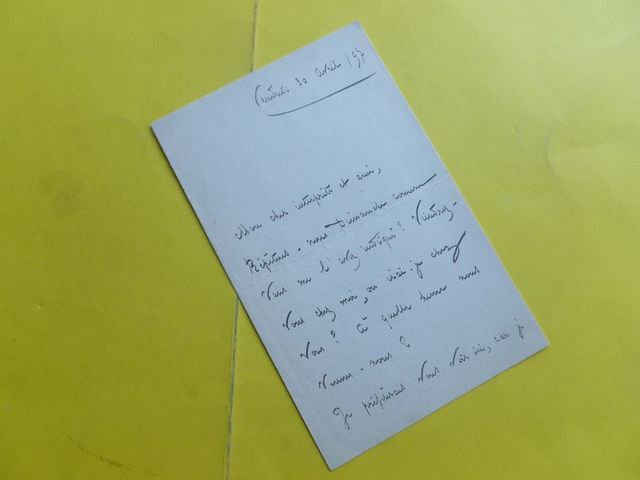 Vendredi 30 avril 97
Mon cher interprète et ami,
Répétons-nous Dimanche comme
Vous me l'avez indiqué ? Viendrez-
Vous chez moi, ou irai-je chez
Vous ? à quelle heure nous
Verrons-nous ?
Je préférerais Vous Voir ici, car je